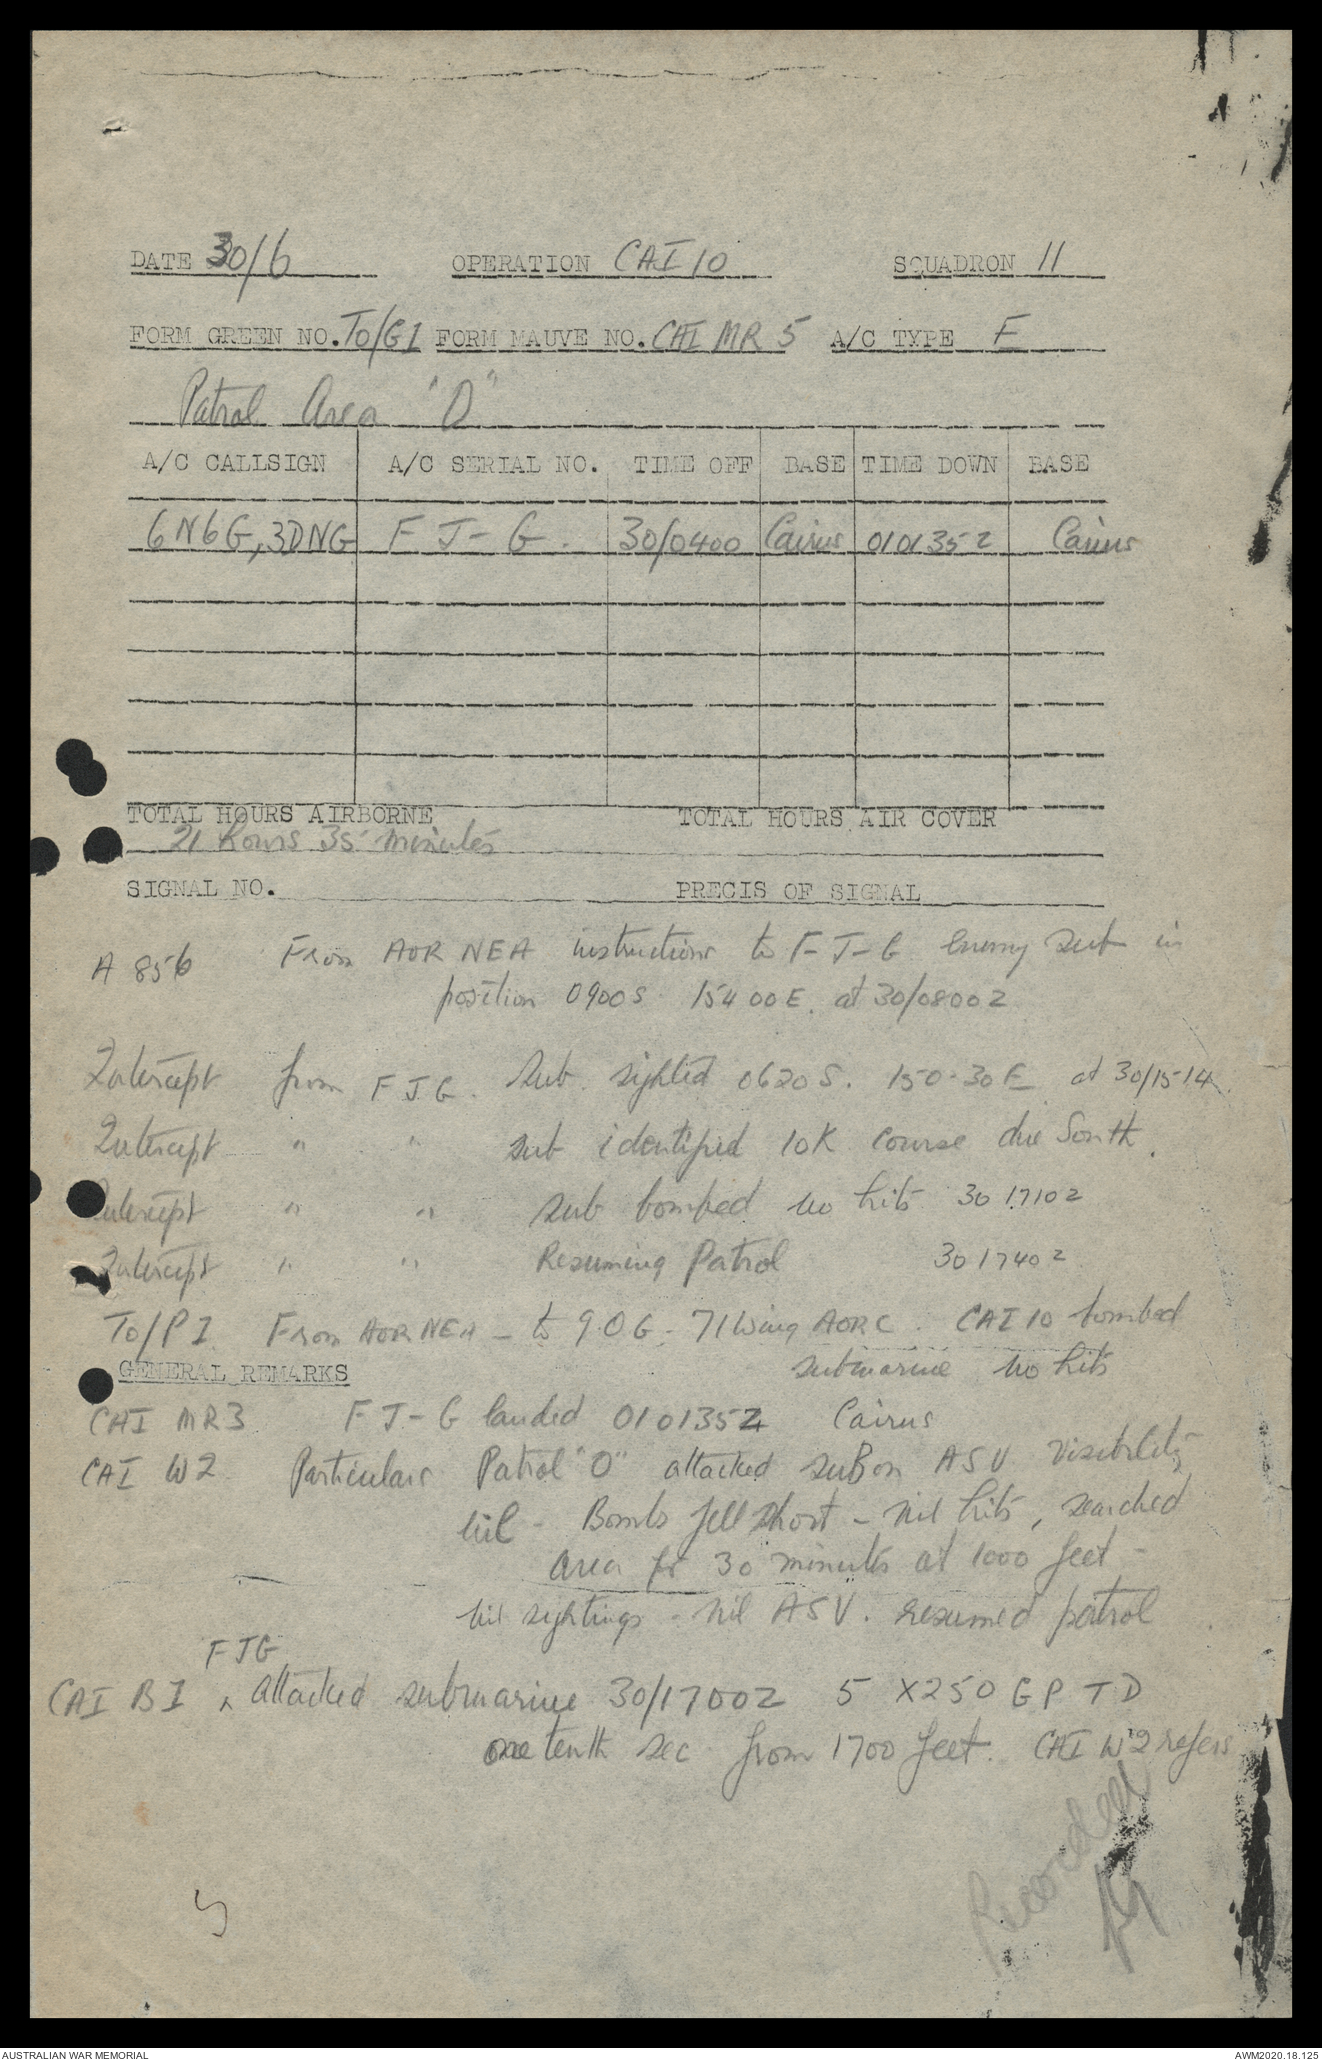 DATE 30/6 OPERATION CAI 10 SQUADRON 11
FORM GREEN NO. To/G1 FORM MAUVE NO. CAI MR 5 A/C TYPE F
Patrol Area "D"
A/C CALLSIGN A/C SERIAL NO. TIME OFF BASE TIME DOWN BASE
6N6G, 3DNG F J-G. 30/0400 Cairns 010135Z Cairns
TOTAL HOURS AIRBORNE TOTAL HOURS AIR COVER
21 hours 35 minutes
SIGNAL NO. PRECIS OF SIGNAL
A 856 From AOR NEA instructions to F J-G enemy sub in
position 0900S 15400E. at 30/0800Z
Intercept from F J G. Sub sighted 0620S. 150-30E at 30/1514
Intercept " " sub identified 10K course due South.
Intercept " " sub bombed no hits 30 1710Z
Intercept " " Resuming Patrol 30 1740Z
To/P1 From AOR NEA - to 9.O.G - 71 Wing AOR C. CAI 10 bombed
submarine no hits
GENERAL REMARKS
CAI MR3 F J-G landed 010135Z Cairns
CAI W2 Particulars Patrol "O" attacked sub on ASV visibility
nil - Bombs fell short - nil hits, searched
area for 30 minutes at 1000 feet -
nil sightings - nil ASV. resumed patrol
FJG
CAI B1 ^ attacked submarine 30/1700Z 5 X250 GP TD
one tenth sec from 1700 feet. CAI W2 refers
Recorded
AUSTRALIAN WAR MEMORIAL AWM2020.18.125